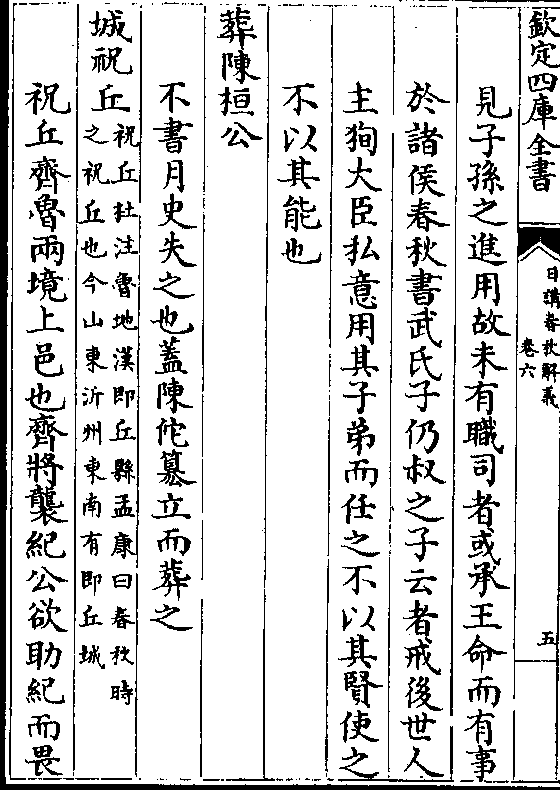 欽定四庫全書
日講春秋解義
卷六
五
見子孫之進用故未有職司者或承王命而有事
於諸侯春秋書武氏子仍叔之子云者戒後世人
主狥大臣私意用其子弟而任之不以其賢使之
不以其能也
葬陳桓公
不書月史失之也蓋陳佗簒立而葬之
城祝丘祝丘杜注魯地漢即丘縣孟康曰春秋時
之祝丘也今山東沂州東南有即丘城
祝丘齊魯兩境上邑也齊將襲紀公欲助紀而畏